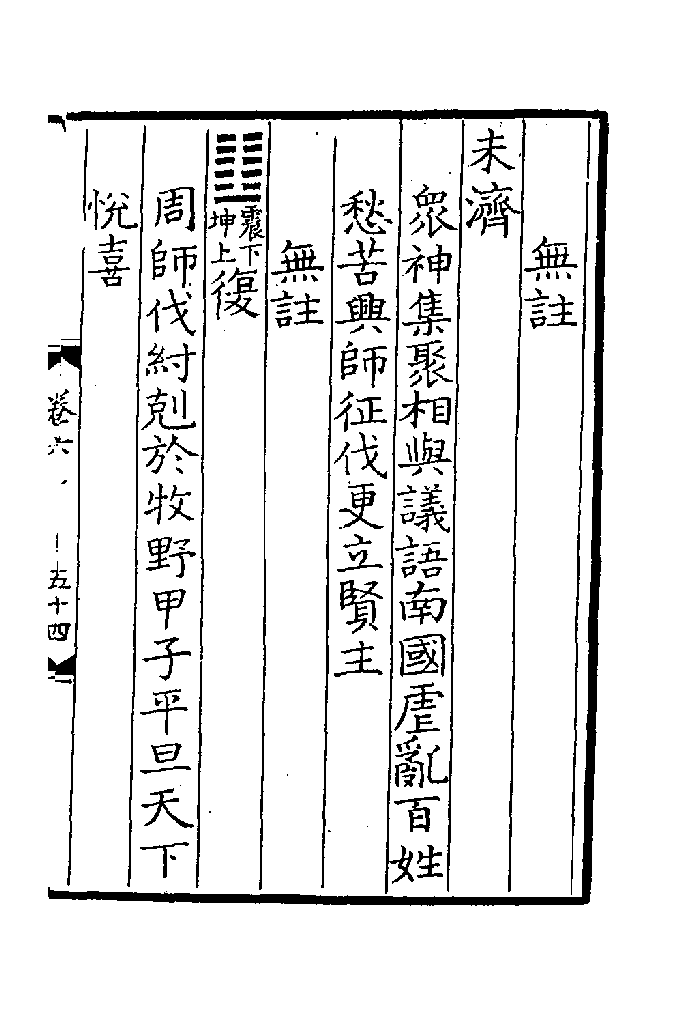 無註
未濟
衆神集聚相與議語南國虐亂百姓
愁苦興師征伐更立賢主
無註
震下坤上復
周師伐紂剋於牧野甲子平旦天下
悅喜
卷六
五十四